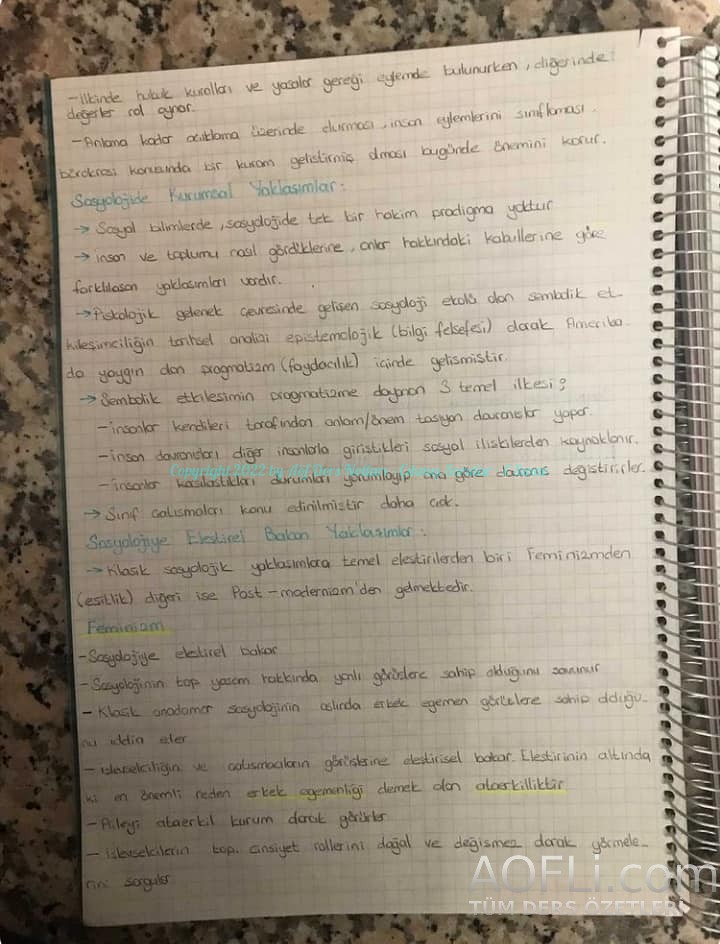 -ilkinde hukuk kuralları ve yasalar gereği eylemde bulunurken, diğerinde:
değerler rol oynar.
-Anlama kadar açıklama üzerinde durması, insan eylemlerini sınıflaması.
bürokrasi konusunda bir kuram geliştirmiş olması bugünde önemini korur.
Sosyolojide Kurumsal Yaklaşımlar:
→ Sosyal bilimlerde, sosyolojide tek bir hakim pradigma yoktur
→ insan ve toplumu nasıl gördüklerine, onlar hakkındaki kabullerine göre
farklılaşan yaklaşımları vardır.
→Piskolojik gelenek çevresinde gelişen sosyoloji ekolü olan sembolik et-
kileşimciliğin tarihsel analizi epistemolojik (bilgi felsefesi) olarak Amerika-
da yaygın olan pragmatizm (faydacılık) içinde gelişmiştir.
→ Sembolik etkileşimin pragmatizme dayanan 3 temel ilkesi;
-insanlar kendileri tarafından anlam/önem taşıyan davranışlar yapar.
-insan davranışları diğer insanlarla giriştikleri sosyal ilişkilerden kaynaklanır.
-insanlar kasılastıkları durumları yorumlayıp ona göre davranış değiştirirler.
→ Sınıf çalışmaları konu edinilmiştir daha çok.
Sosyolojiye Eleştirel Bakan Yaklaşımlar:
→ Klasik sosyolojik yaklaşımlara temel eleştirilerden biri Feminizmden
(eşitlik) diğeri ise Post-modernizm'den gelmektedir.
Feminizm
-Sosyolojiye eleştirel bakar
-Sosyolojinin top yaşam hakkında yanlı görüşlere sahip olduğunu savunur
- Klasik anadamar sosyolojinin aslında erkek egemen görüşlere sahip olduğu-
nu iddia eder
- işlevselciliğin ve çatışmacıların görüşlerine eleştirisel bakar. Eleştirinin altında
ki en önemli neden erkek egemenliği demek olan ataerkilliktir
- Aileyi ataerkil kurum olarak görürler
- işlevselcilerin top. cinsiyet rollerini doğal ve değişmez olarak görmele-
rini sorgular
AOFLi.com
TÜM DERS ÖZETLERİ